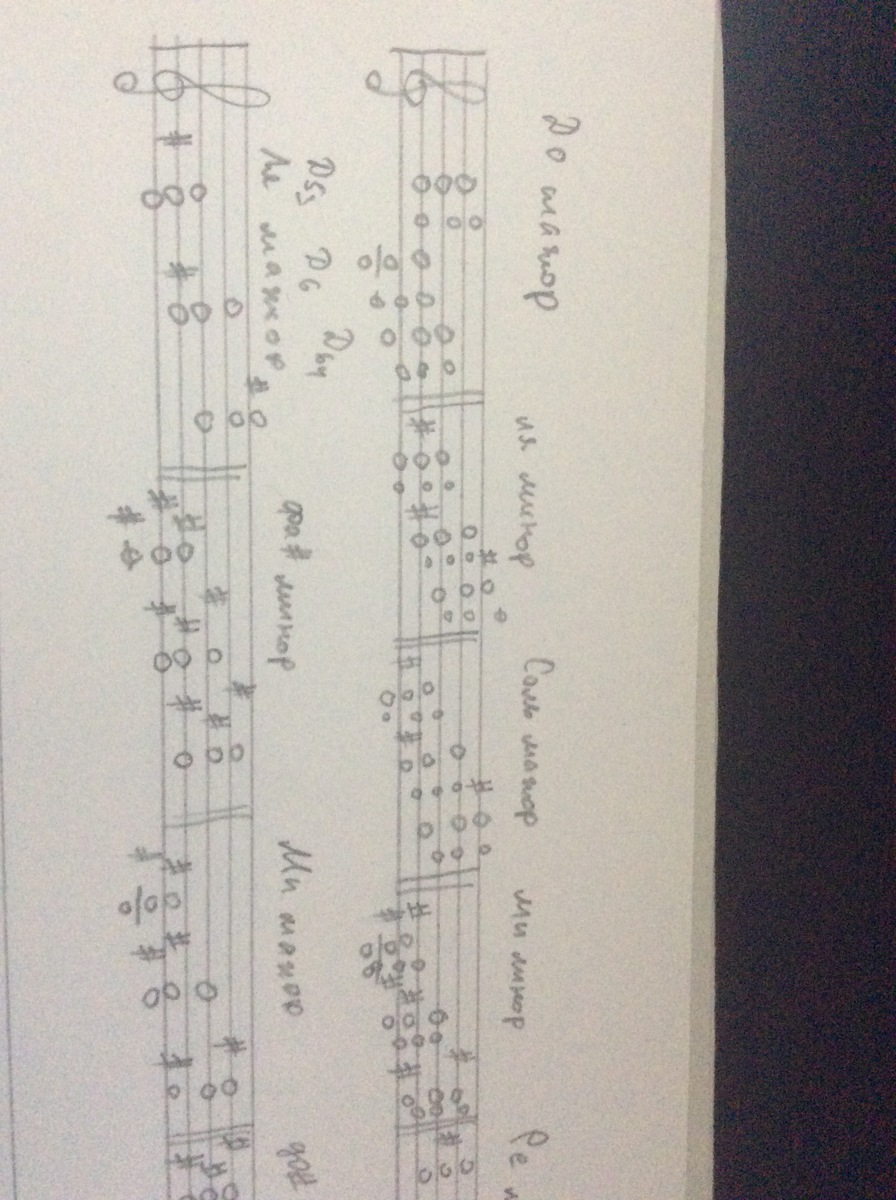 До мажор ля минор Соль мажор ми минор Ре
D53 D6 D64
Ля мажор фа# минор Ми мажор